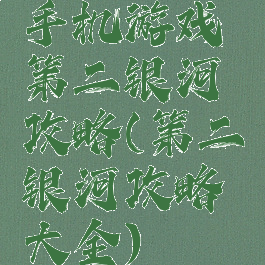 手机游戏
第二银河
攻略(第二
银河攻略
大全)